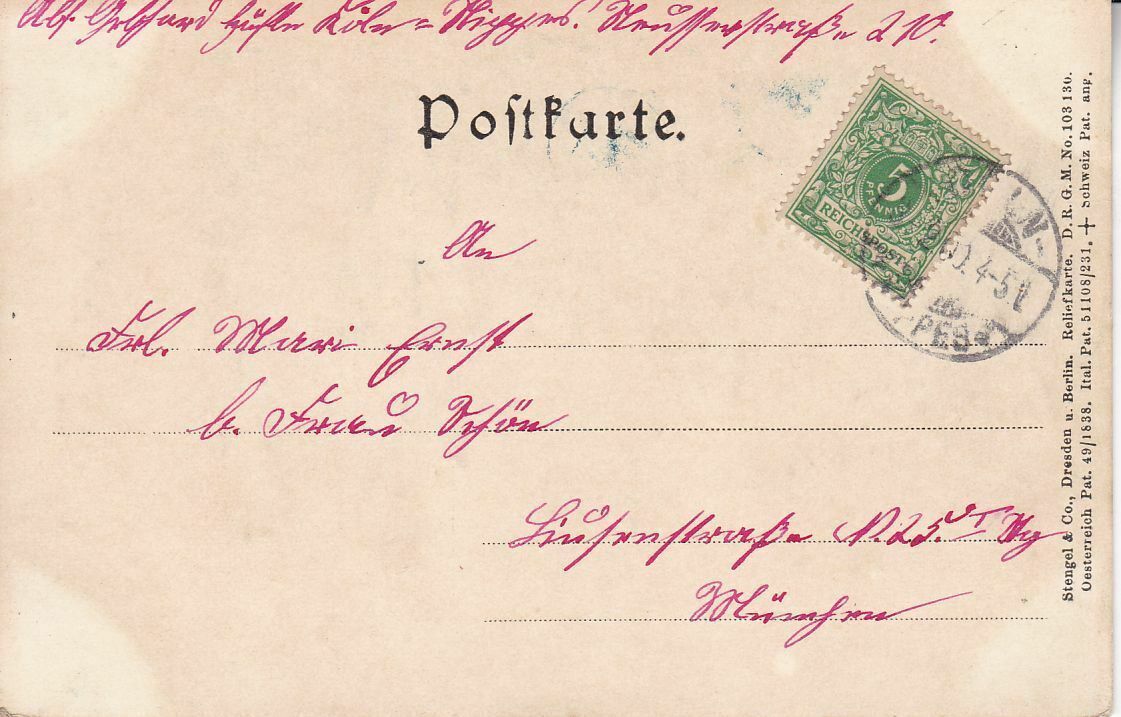 Abs. Gebhard Köln-Nippes. Neusserstraße
Postkarte.
5
PFENNIG
REICHSPOST
4-5
An
Frl. Mari Ernst
b. Frau Schön
Luisenstraße N. 25.
München
Stengel & Co., Dresden u. Berlin. Reliefkarte. D. R. G. M. No. 103 130.
Oesterreich Pat. 49/1838. Ital. Pat. 51108/231. + Schweiz Pat. ang.